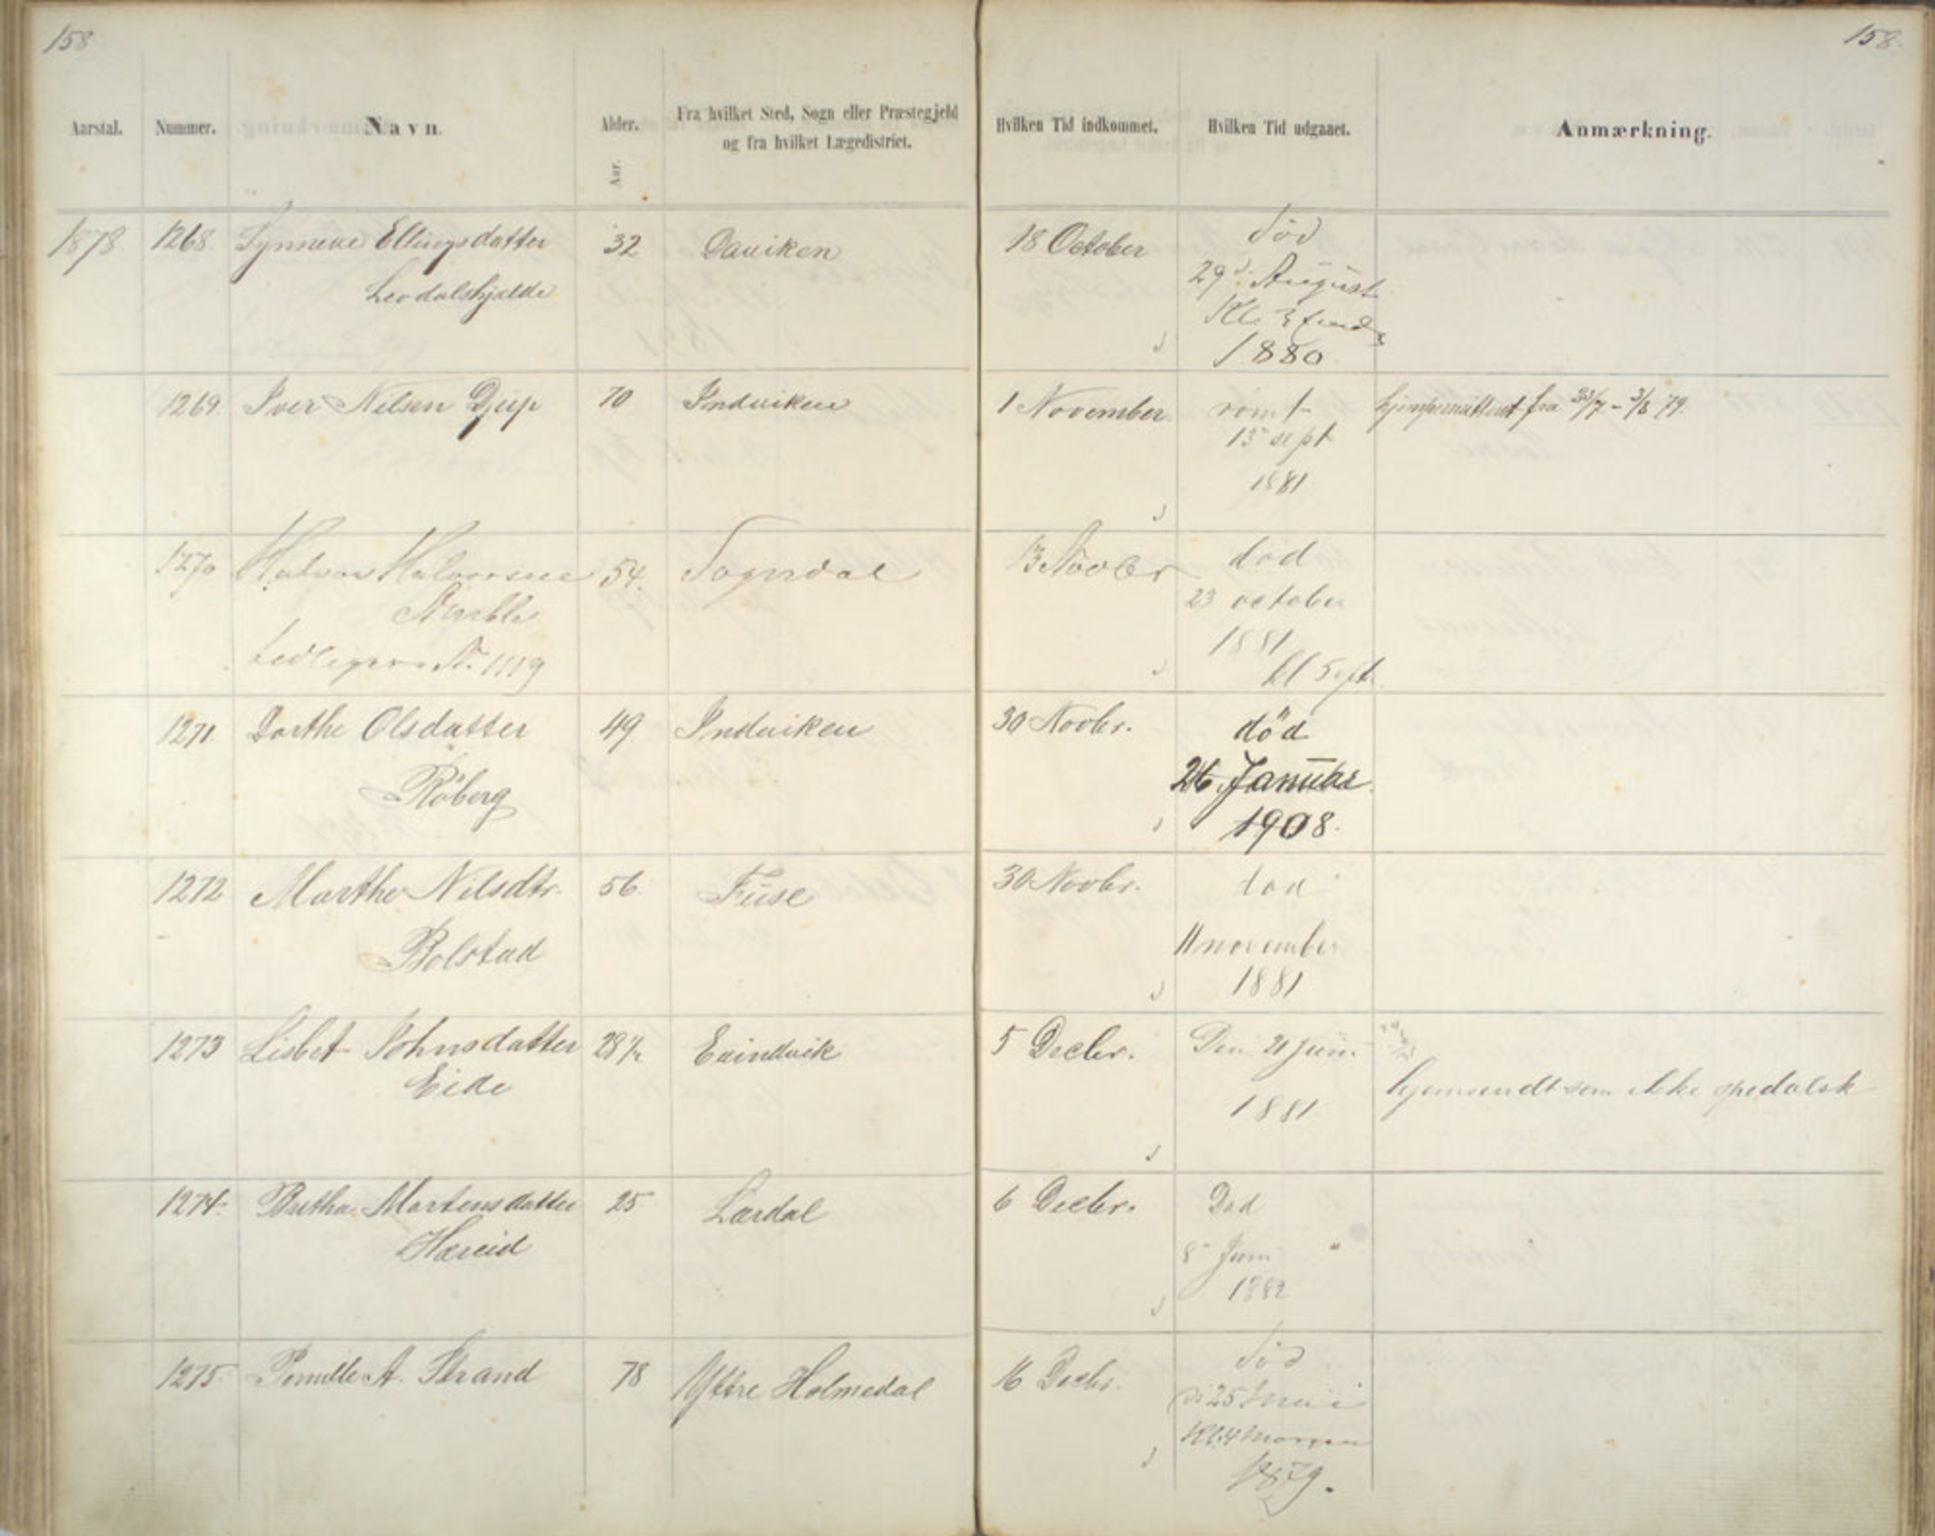 158
158.
Aarstal.
Nummer.
Navn.
Alder.
Aar.
Fra hvilket Sted, Sogn eller Præstegjeld
og fra hvilket Lægedistrict.
Hvilken Tid indkommet.
Hvilken Tid udgaaet.
Anmærkning.
1878 1268. Synneve Ellingsdatter 32 Daviken 18 October Död
29d. August
Kl. 3
1880
1269. Iver Nilsen Djup 70 Indviken 1 November römt hjempermitteret fra 23/7 - 3/8 79.
15 sept
1881
1270 Halvor Halvorsen 54. Sogndal 13 Novbr död
23 october
tidligere No. 1119 1881
kl 5 eft.
1271. Dorthe Olsdatter 49 Indviken 30 Novbr. död
Röberg 26 Januar
1908.
1272 Marthe Nilsdtr. 56. Fuse 30 Novbr. död
Bolstad 11 november
1881
1273 Lisbet Johnsdatter 28½ Evindvik 5 Decbr. Den 21 Juni
Eide 1881 hjemsendt som ikke spedalsk
1274. Brithe Martensdatter 25 Lærdal 6 Decbr. Död
Hæreid 8 Juni
1882
1275 Pernille A. Strand 78 Yttre Holmedal 16 Decbr. Död
25 Mai
Kl. 4 Morgen
1879.